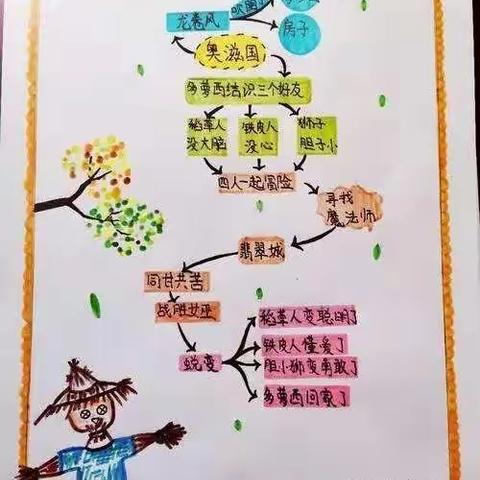 龙卷风
房子
奥滋国
多萝西结识三个好友
稻草人
没大脑
铁皮人
没心
狮子
胆子小
四人一起冒险
寻找
魔法师
翡翠城
同甘共苦
战胜女巫
蜕变
稻草人变聪明了
铁皮人懂爱了
胆小狮变勇敢了
多萝西回家了